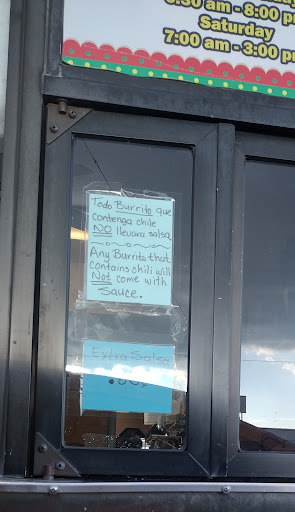 6:30 am - 8:00 p
Saturday
7:00 am - 3:00 p
Todo Burrito que
contenga chile
NO llevara salsa
Any Burrito that
contains chili will
Not come with
Sauce.
Extra Salsa